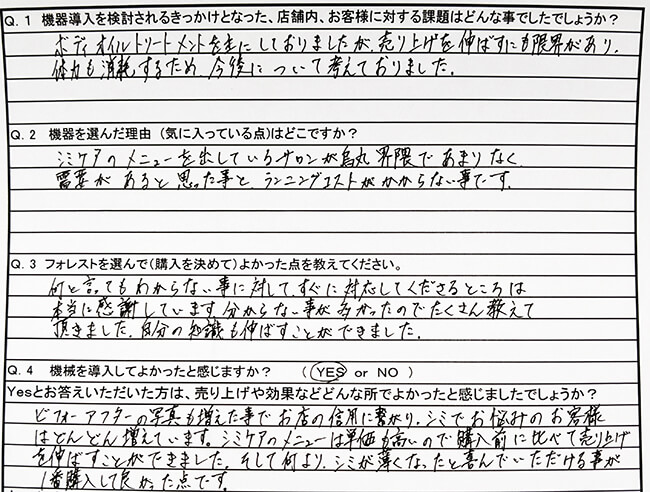 Q.1 機器導入を検討されるきっかけとなった、店舗内、お客様に対する課題はどんな事でしたでしょうか？
ボディオイルトリートメントを主にしておりましたが、売り上げを伸ばすにも限界があり、
体力も消耗するため、今後について考えておりました。
Q.2 機器を選んだ理由（気に入っている点）はどこですか？
シミケアのメニューを出しているサロンが烏丸界隈であまりなく、
需要があると思った事と、ランニングコストがかからない事です。
Q.3 フォレストを選んで（購入を決めて）よかった点を教えてください。
何と言ってもわからない事に対して、すぐに対応してくださるところは
本当に感謝しています。分からない事が多かったのでたくさん教えて
頂きました。自分の知識も伸ばすことができました。
Q.4 機械を導入してよかったと感じますか？ （ YES or NO ）
Yesとお答えいただいた方は、売り上げや効果などどんな所でよかったと感じましたでしょうか？
ビフォーアフターの写真も増えた事でお店の信用に繋がり、シミでお悩みのお客様
はどんどん増えています。シミケアのメニューは単価も高いので購入前に比べて売り上げ
を伸ばすことができました。そして何より、シミが薄くなったと喜んでいただける事が
1番購入して良かった点です。